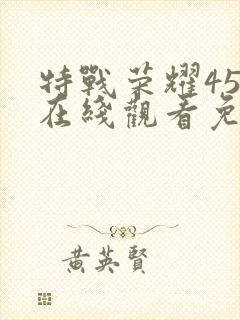 特戰荣耀45
在綫觀看免
黄英賢